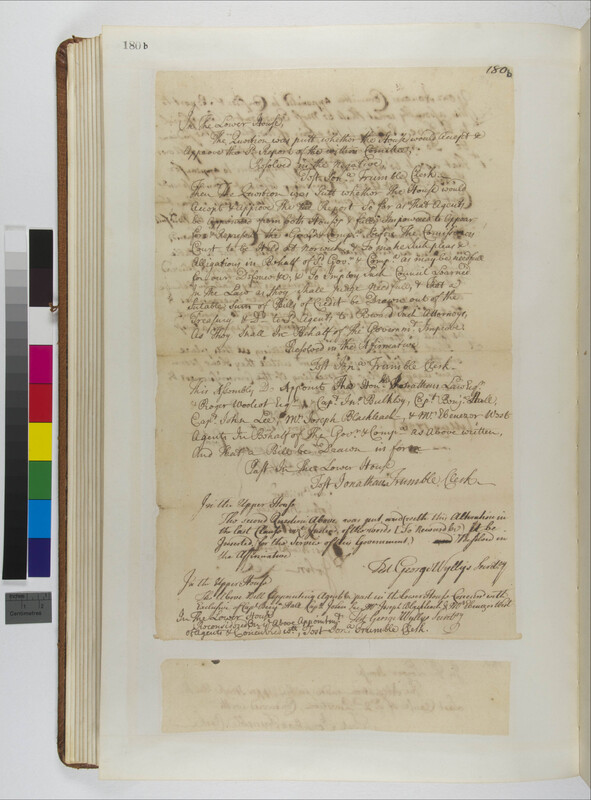 180 b
180b
In the Lower House,
The Question was putt whether the House would Accept &
Approve the Report of the within Comittee,
Resolved in the Negative
Test Jonª Trumble Clerk
Then Question was Putt whether The House would
Accept & approve the Report So far as that Agents
be Appointed from both Houses & fully Impowered to Appear
for & Represent the Govr & Compª Before the Comissioners
Court to be Held at Norwich & To make Such pleas &
Allegations in Behalf of Govr & Compª as may be needfull
& To Imploy Such Council Learned
In the Law as they Shall Judge needfull, & that a
Suitable Sum of Bills of Credit be Drawn out of the
Treasury Agents, to Reward Such Attorneys,
as they Shall In Behalf of the Governmt Improve.
Resolved in the Affirmative
Test Jonª Trumble Clerk
This Assembly Do Appoint The Honble Jonathan Law Esqr
& Roger Wolcot Esqr Capt Jnº Bulkley, Capt Benj Hall,
Capt John Lee, Mr Joseph Blachleach, & Mr Ebenezer West
Agents In Behalf of The Govr & Compª as above written,
And that a Bill be Drawn in form
Past In the Lower House
Test Jonathan Trumble Clerk
In the Upper House
The second Question Above was put and with this Alteration in
the last Clause instead of the words (To Reward &c) it be
Inserted (for the Service of the Government) Resolved in
the Affirmative
Test George Wyllys Secretry
In the Upper House
The Above Bill Appointing Agents &c past in the Lower House Concurred with
Exclusive of Capt Benj Hall Capt John Lee, Mr Joseph Blachleach & Mr Ebenezer West
Test George Wyllys Secretry
In The Lower House
Reconsidered ye Above Appointmt
of Agents & Concurred &c, Test Jonª Trumble Clerk.
Centimetres